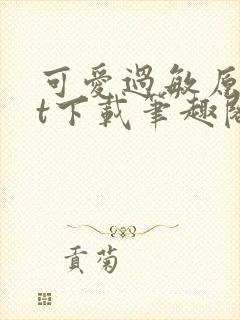 可愛過敏原
t下載筆趣閣
貢菊